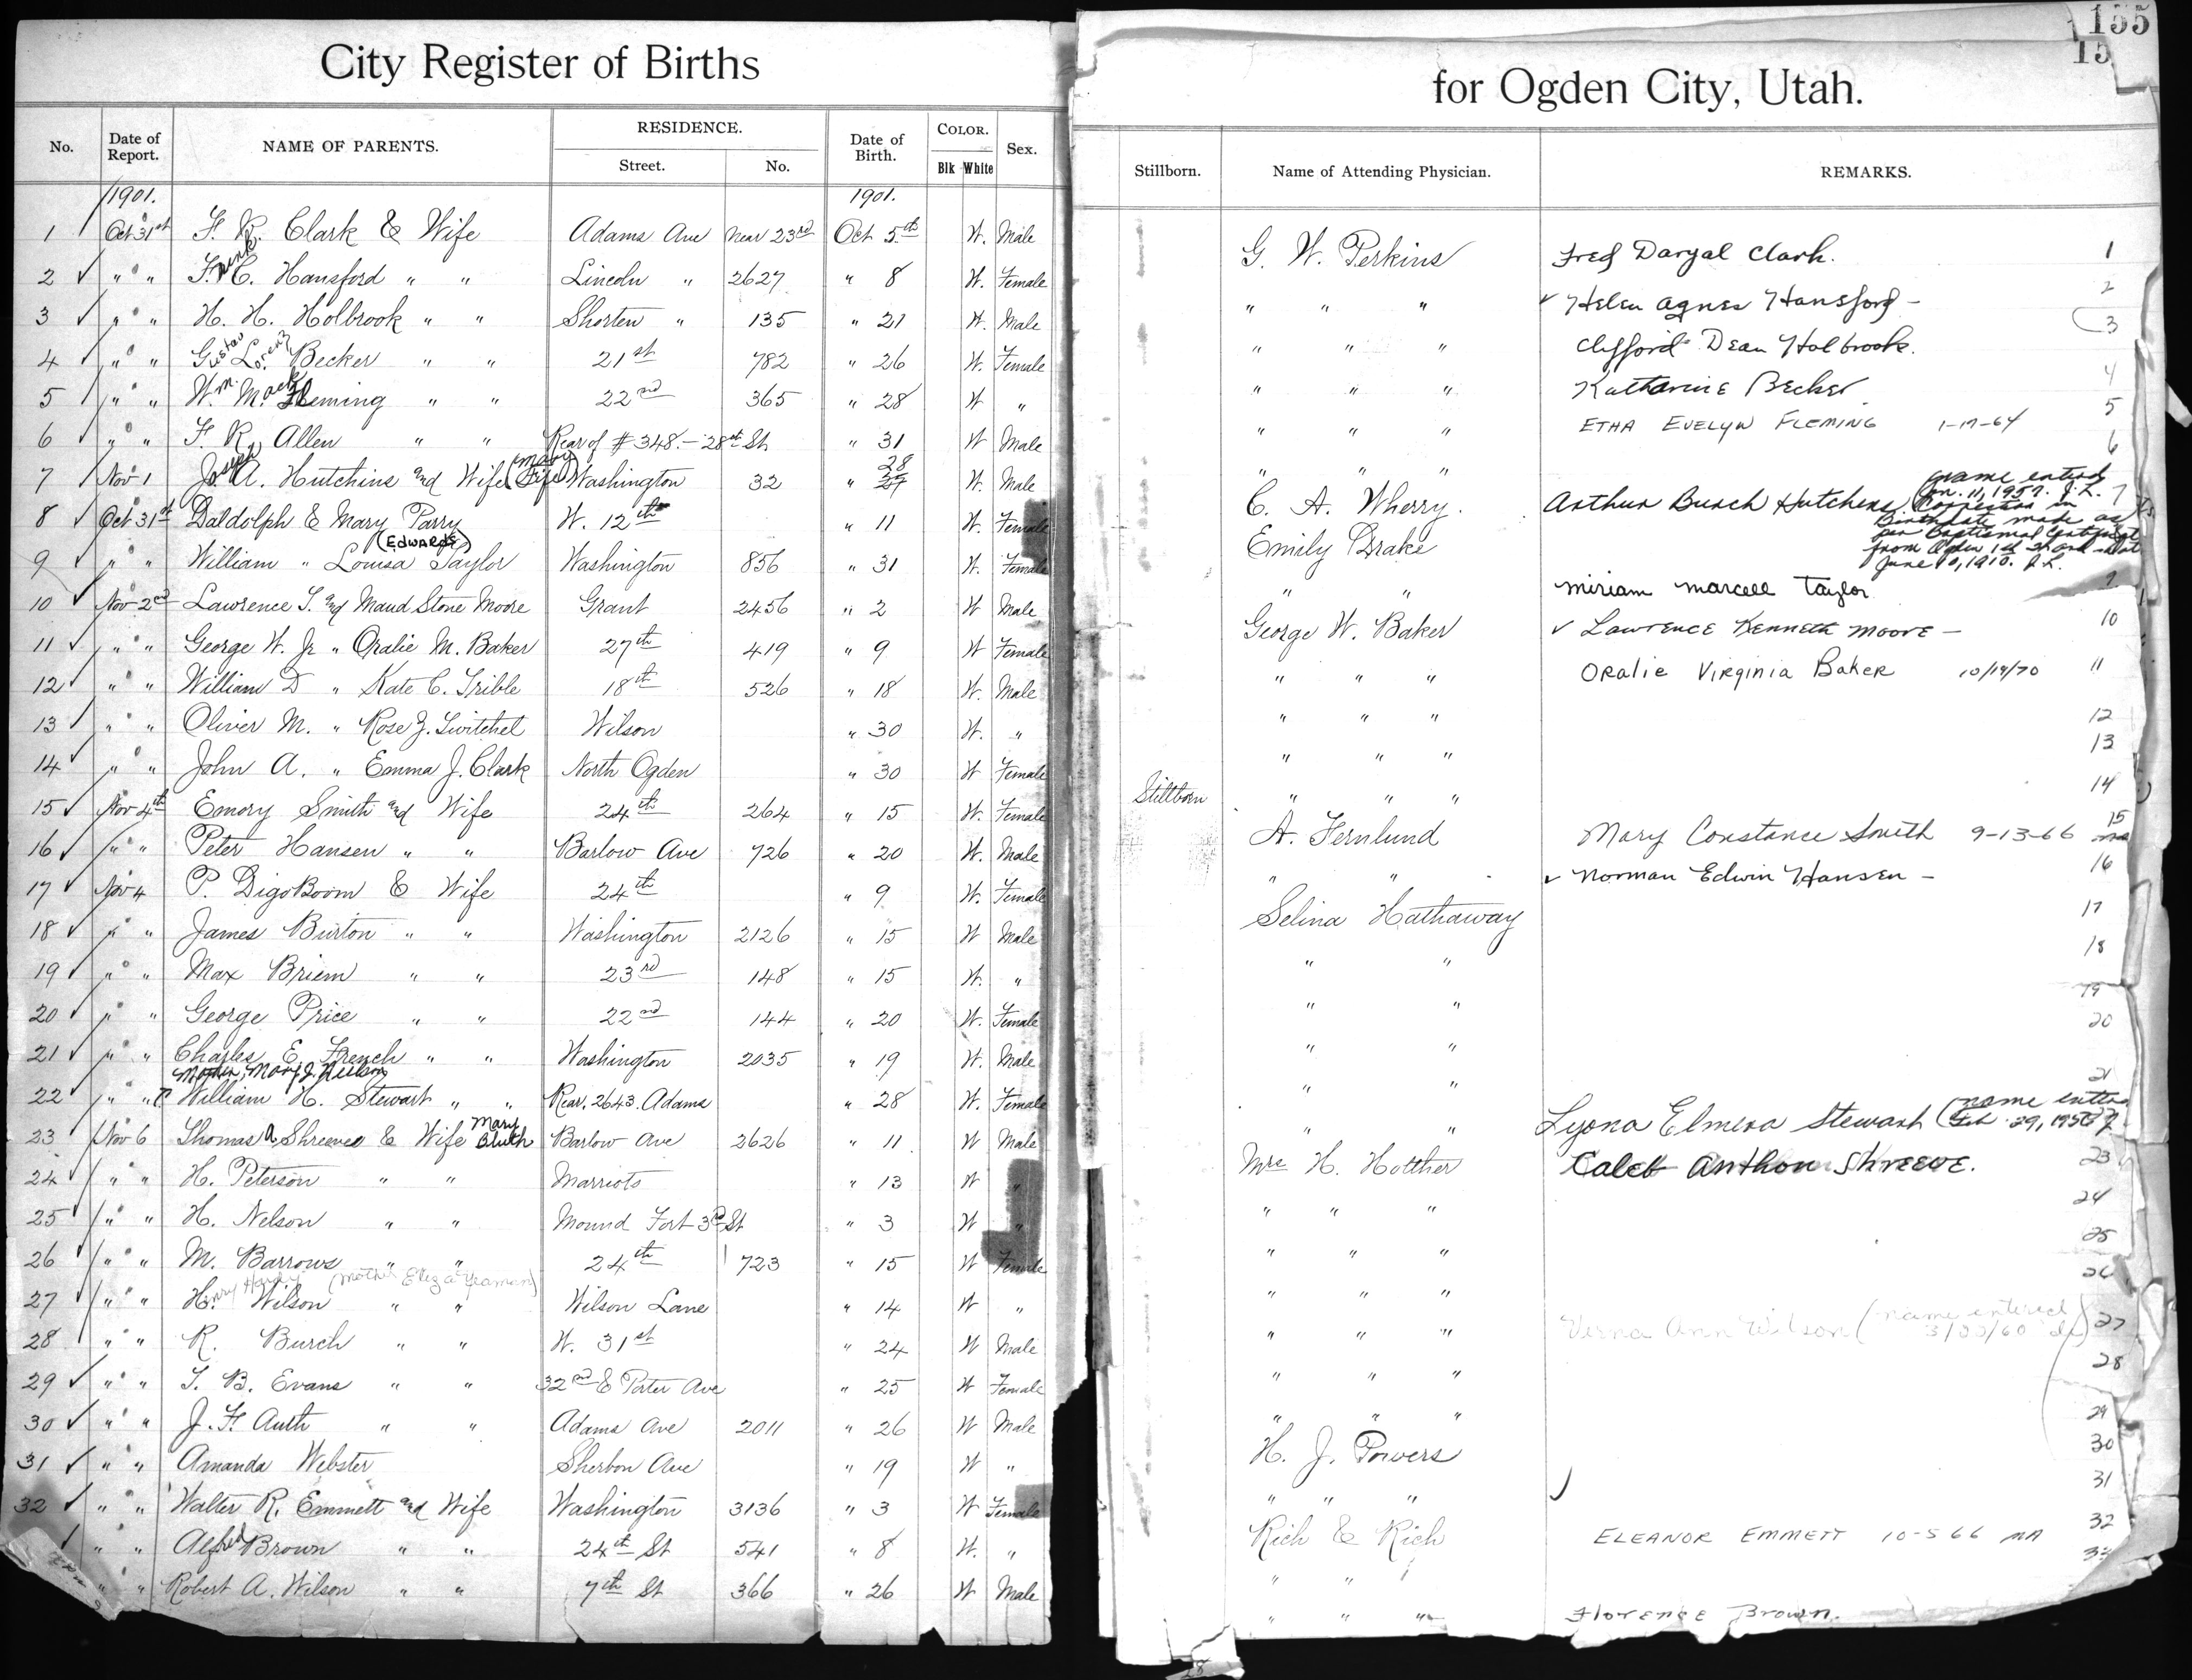 City Register of Births
No. Date of Report. NAME OF PARENTS. RESIDENCE. Street. No. Date of Birth. COLOR. Blk White Sex.
1901. 1901.
1 Oct 31st F. R. Clark & Wife Adams Ave Near 23rd Oct 5th W. Male
2 ✓ " " Frank C. Hansford " " Lincoln " 2627 " 8 W. Female
3 ✓ " " H. H. Holbrook " " Shorten " 135 " 21 W. Male
4 ✓ " " Gustav Lorenz Becker " " 21st 782 " 26 W. Female
5 ✓ " " Wm. Mack Fleming " " 22nd 365 " 28 W "
6 ✓ " " F. R. Allen " " Rear of # 348. - 28st St " 31 W Male
7 ✓ Nov 1 Joseph A. Hutchins and Wife (Mary Fife) Washington 32 " 28 W. Male
8 ✓ Oct 31st Daldolph & Mary Parry W. 12th " 11 W. Female
(EDWARDS)
9 ✓ " " William " Louisa Taylor Washington 856 " 31 W. Female
10 ✓ Nov 2nd Lawrence T. and Maud Stone Moore Grant 2456 " 2 W Male
11 ✓ " " George W. Jr " Oralie M. Baker 27th 419 " 9 W Female
12 ✓ " " William D " Kate C. Trible 18th 526 " 18 W. Male
13 ✓ " " Oliver M. " Rose Z. Twitchel Wilson " 30 W. "
14 ✓ " " John A. " Emma J. Clark North Ogden " 30 W Female
15 ✓ Nov 4th Emory Smith and Wife 24th 264 " 15 W. Female
16 ✓ " " Peter Hansen " " Barlow Ave 726 " 20 W. Male
17 ✓ Nov 4 P. DigoBoom & Wife 24th " 9 W. Female
18 ✓ " " James Burton " " Washington 2126 " 15 W Male
19 ✓ " " Max Briem " " 23rd 148 " 15 W. "
20 ✓ " " George Price " " 22nd 144 " 20 W. Female
21 ✓ " " Charles E. French " " Washington 2035 " 19 W. Male
Mother, Mary J. Neilson
22 " " William H. Stewart " " Rear. 2643. Adams " 28 W. Female
23 ✓ Nov 6 Thomas A Shreeve & Wife Mary Bluth Barlow Ave 2626 " 11 W Male
24 " " H. Peterson " " Marriots " 13 W "
25 " " H. Nelson " " Mound Fort 3rd St " 3 W "
26 " " M. Barrows " " 24th 723 " 15 W Female
27 " " Henry Hardy Wilson (Mother Eliza Yeaman) " " Wilson Lane " 14 W "
28 " " R. Burch " " W. 31st " 24 W Male
29 ✓ " " T. B. Evans " " 32nd & Porter Ave " 25 W Female
30 ✓ " " J. F. Auth " " Adams Ave 2011 " 26 W Male
31 ✓ " " Amanda Webster Sherbon Ave " 19 W "
32 ✓ " " Walter R. Emmett and Wife Washington 3136 " 3 W Female
" " Alfred Brown " " 24th St 541 " 8 W. "
" " Robert A. Wilson " " 7th St 366 " 26 W Male
155
15
for Ogden City, Utah.
Stillborn. Name of Attending Physician. REMARKS.
G. W. Perkins Fred Dargal Clark. 1
" " " ✓ Helen Agnes Hansford - 2
" " " Clifford Dean Holbrook. 3
" " " Katharine Becker 4
" " " ETHA EVELYN FLEMING 1-17-64 5
" " " 6
C. A. Wherry. Arthur Burch Hutchens (name entered Jan. 11, 1957. J.L. 7
Correction in
Birthdate made as
per Baptismal Certificate
from Ogden 1st Ward
June 10, 1910. J.L.
Emily Drake
" " Miriam Marcell Taylor
George W. Baker ✓ Lawrence Kenneth Moore - 10
" " " Oralie Virginia Baker 10/19/70 11
" " " 12
" " " 13
Stillborn " " " 14
A. Fernlund Mary Constance Smith 9-13-66 15
" " ✓ Norman Edwin Hansen - 16
Selina Hathaway 17
" " 18
" " 19
" " 20
" " 21
" " Lyona Elmera Stewart (name entered Feb. 29, 1956)
Mrs H. Holther Caleb Anthon Shreeve. 23
" " " 24
" " " 25
" " " 26
" " " Verna Ann Wilson (name entered 3/22/60) 27
" " " 28
" " " 29
H. J. Powers 30
" " " ✓ 31
Rich & Rich ELEANOR EMMETT 10-5 66 MA 32
" " 33
" " " Florence Brown.
28